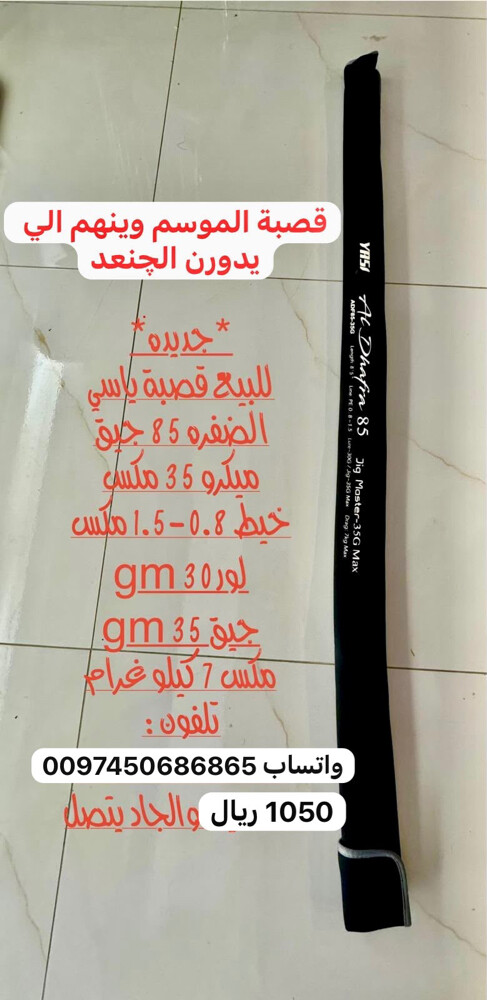 قصبة الموسم وينهم الي
يدورن الچنعد
*جديده*
للبيع قصبة ياسي
الضفره 85 جيق
ميكرو 35 مكس
خيط 0.8-1.5 مكس
لور 30 gm
جيق 35 gm
مكس 7 كيلو غرام
تلفون :
واتساب 0097450686865
1050 ريال
والجاد يتصل
YASI
Al Dhafra 85 Jig Master-35G Max
ADF85-35G Length: 8'5" Line: PE 0.8-1.5 Lure-30G / Jig-35G Max Drag: 7kg Max